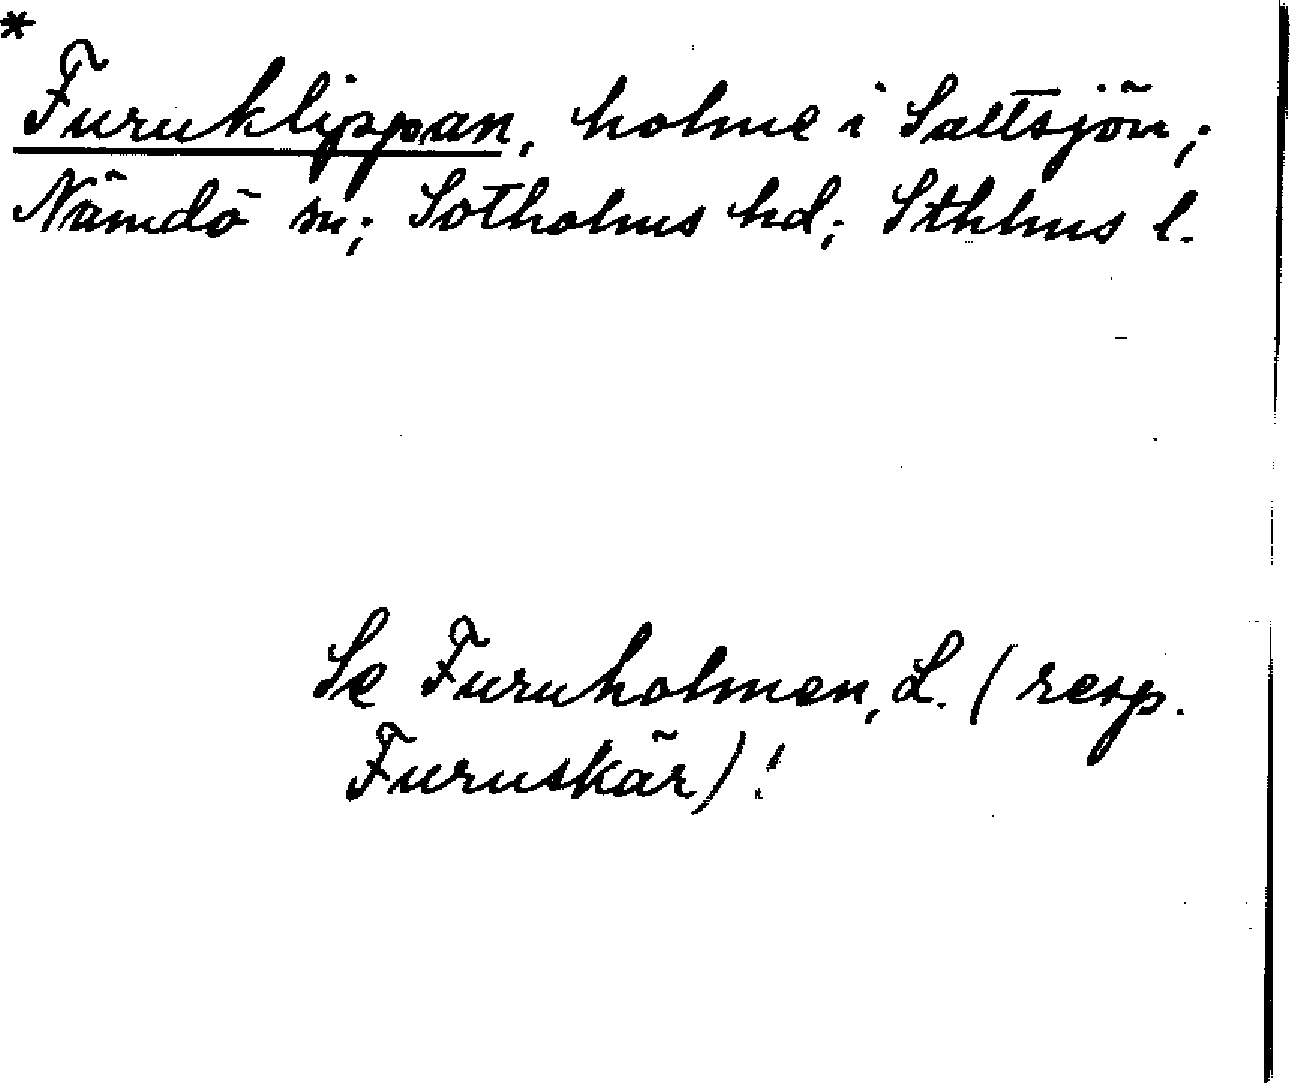 *
Furuklippan, holme i Saltsjön;
Nämdö sn; Sotholms hd; Sthlms l.
Se Furuholmen, L. (resp.
Furuskär)!